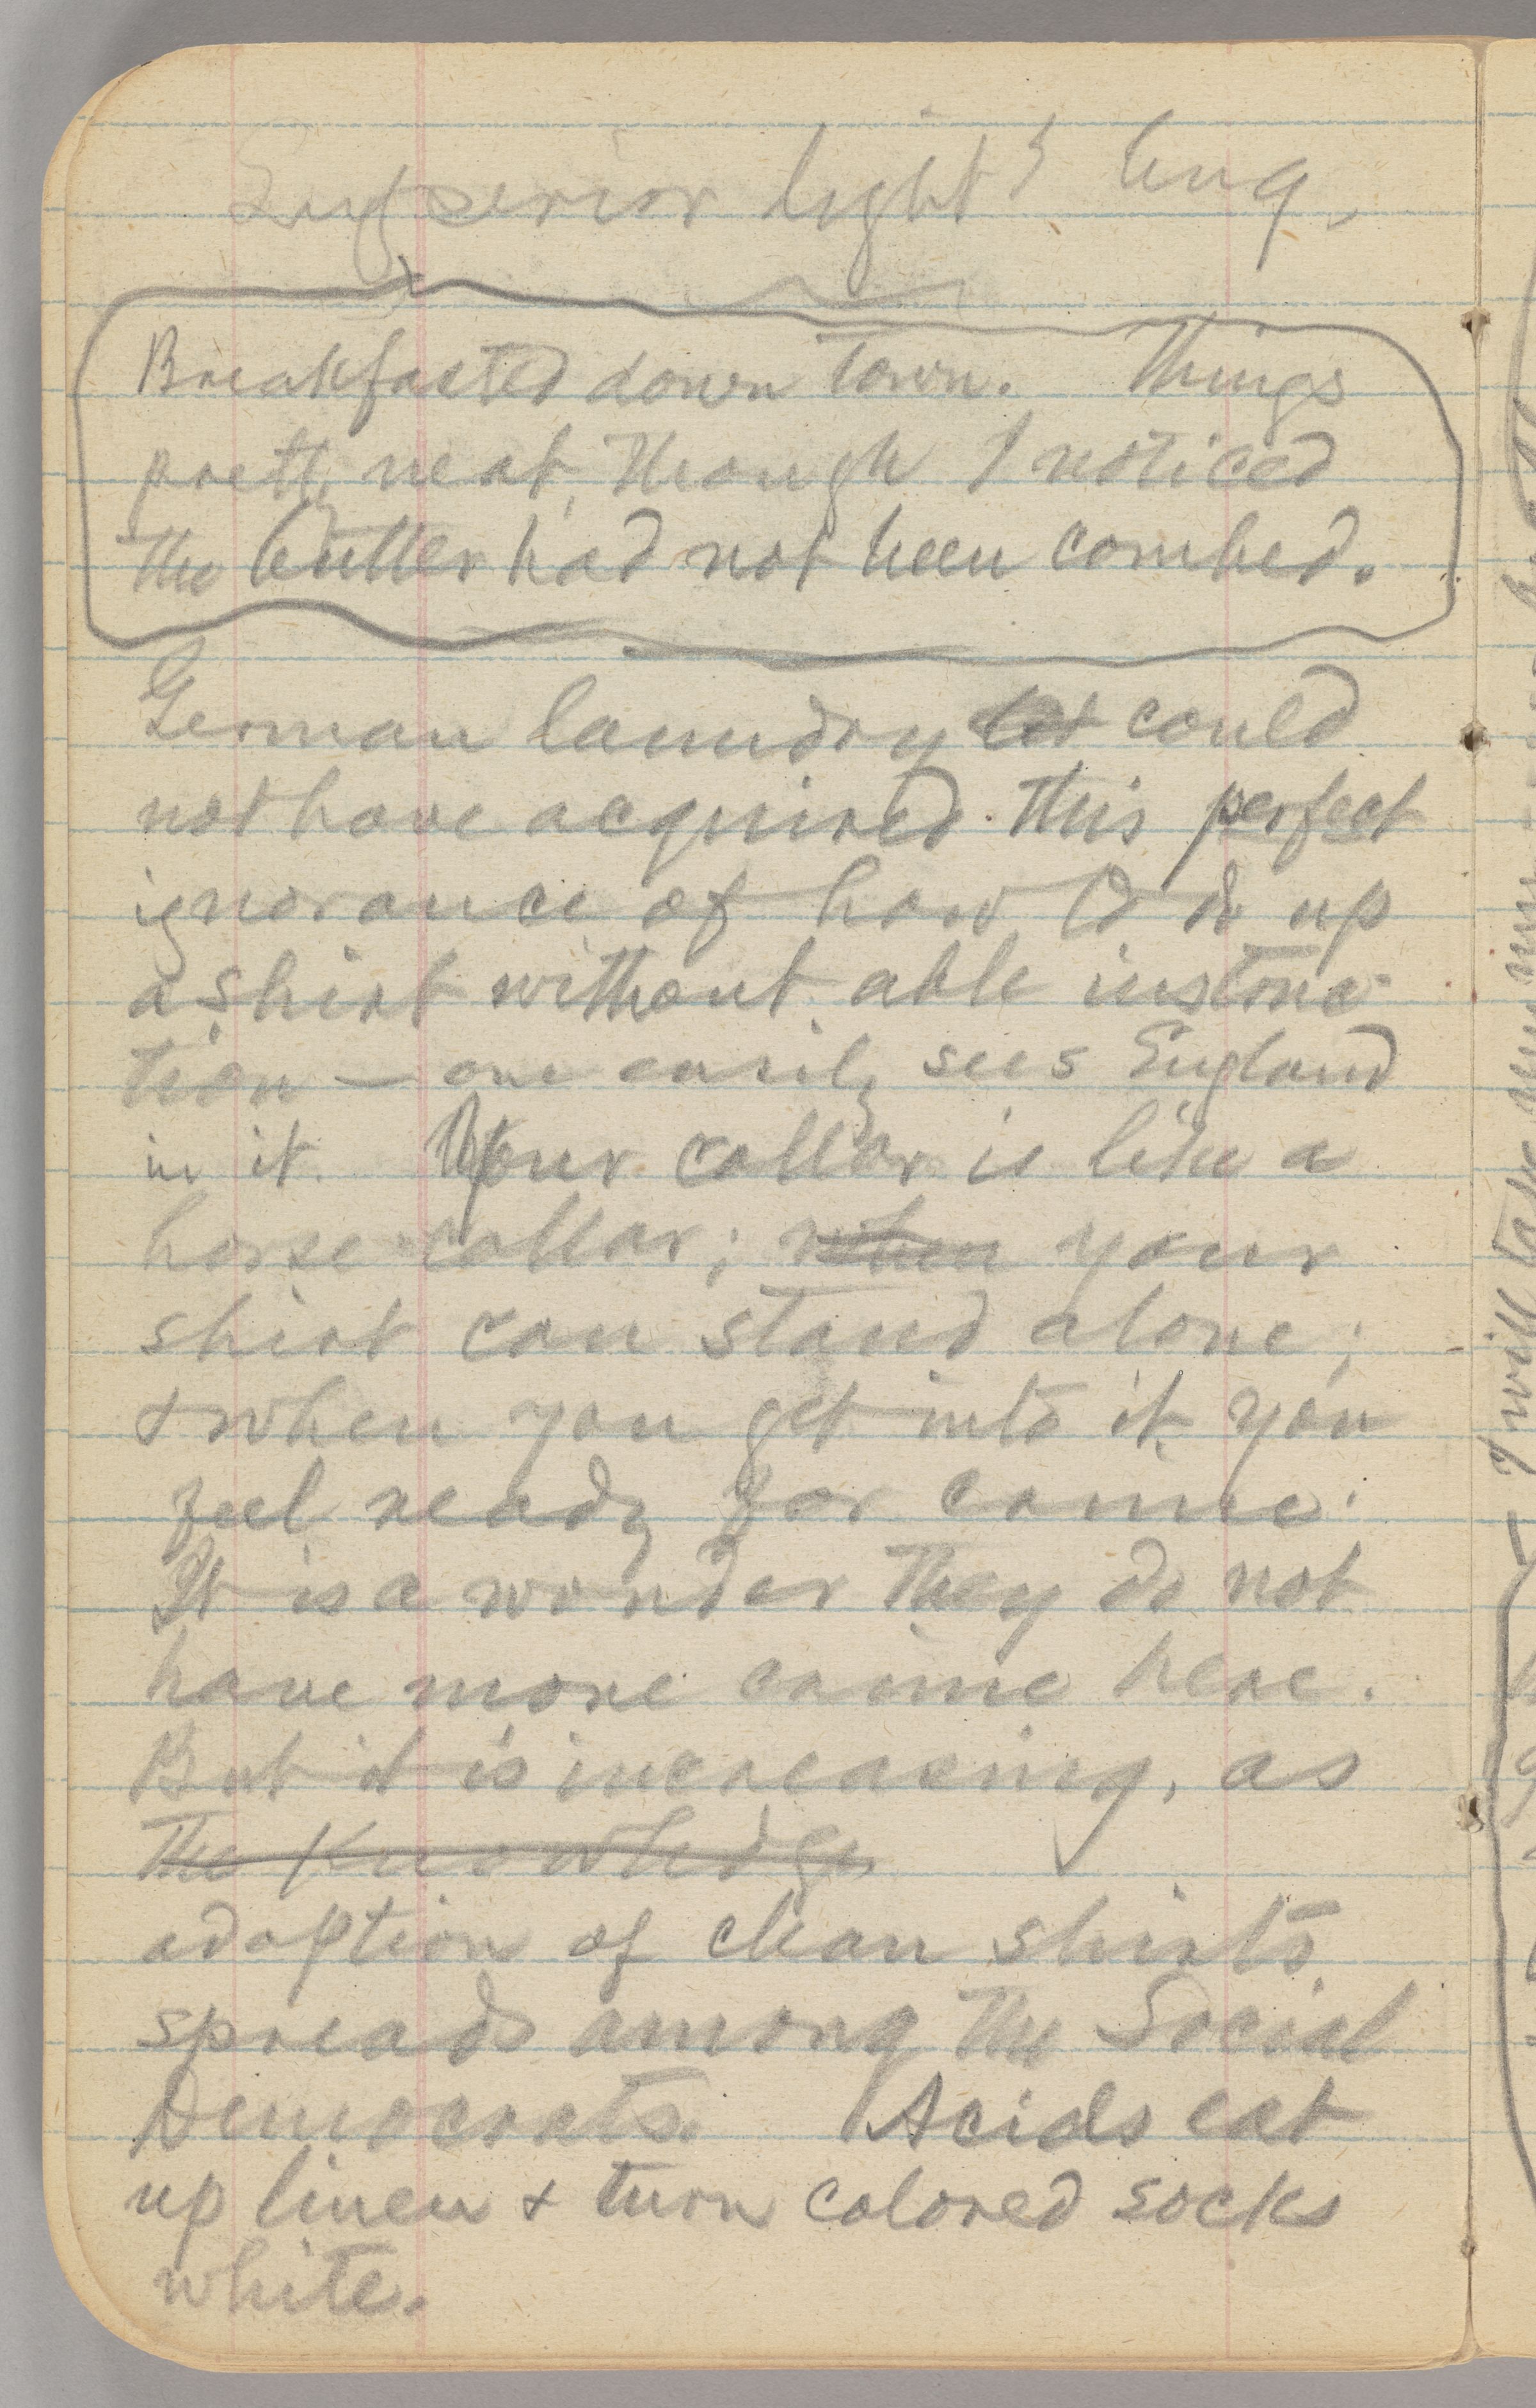 Superior light'g
Breakfasted down town. Things
pretty neat, though I noticed
the butter had not been combed.
German laundry could
not have acquired this perfect
ignorance of how to do up
a shirt without able instruc-
tion — one easily sees England
in it. Your collar is like a
horse-collar; when your
shirt can stand alone;
& when you get into it you
feel ready for crime.
It is a wonder they do not
have more crime here.
But it is increasing, as
The knowledge
adoption of clean shirts
spreads among the Social
Democrats. Acids eat
up linen & turn colored socks
white.
I will take